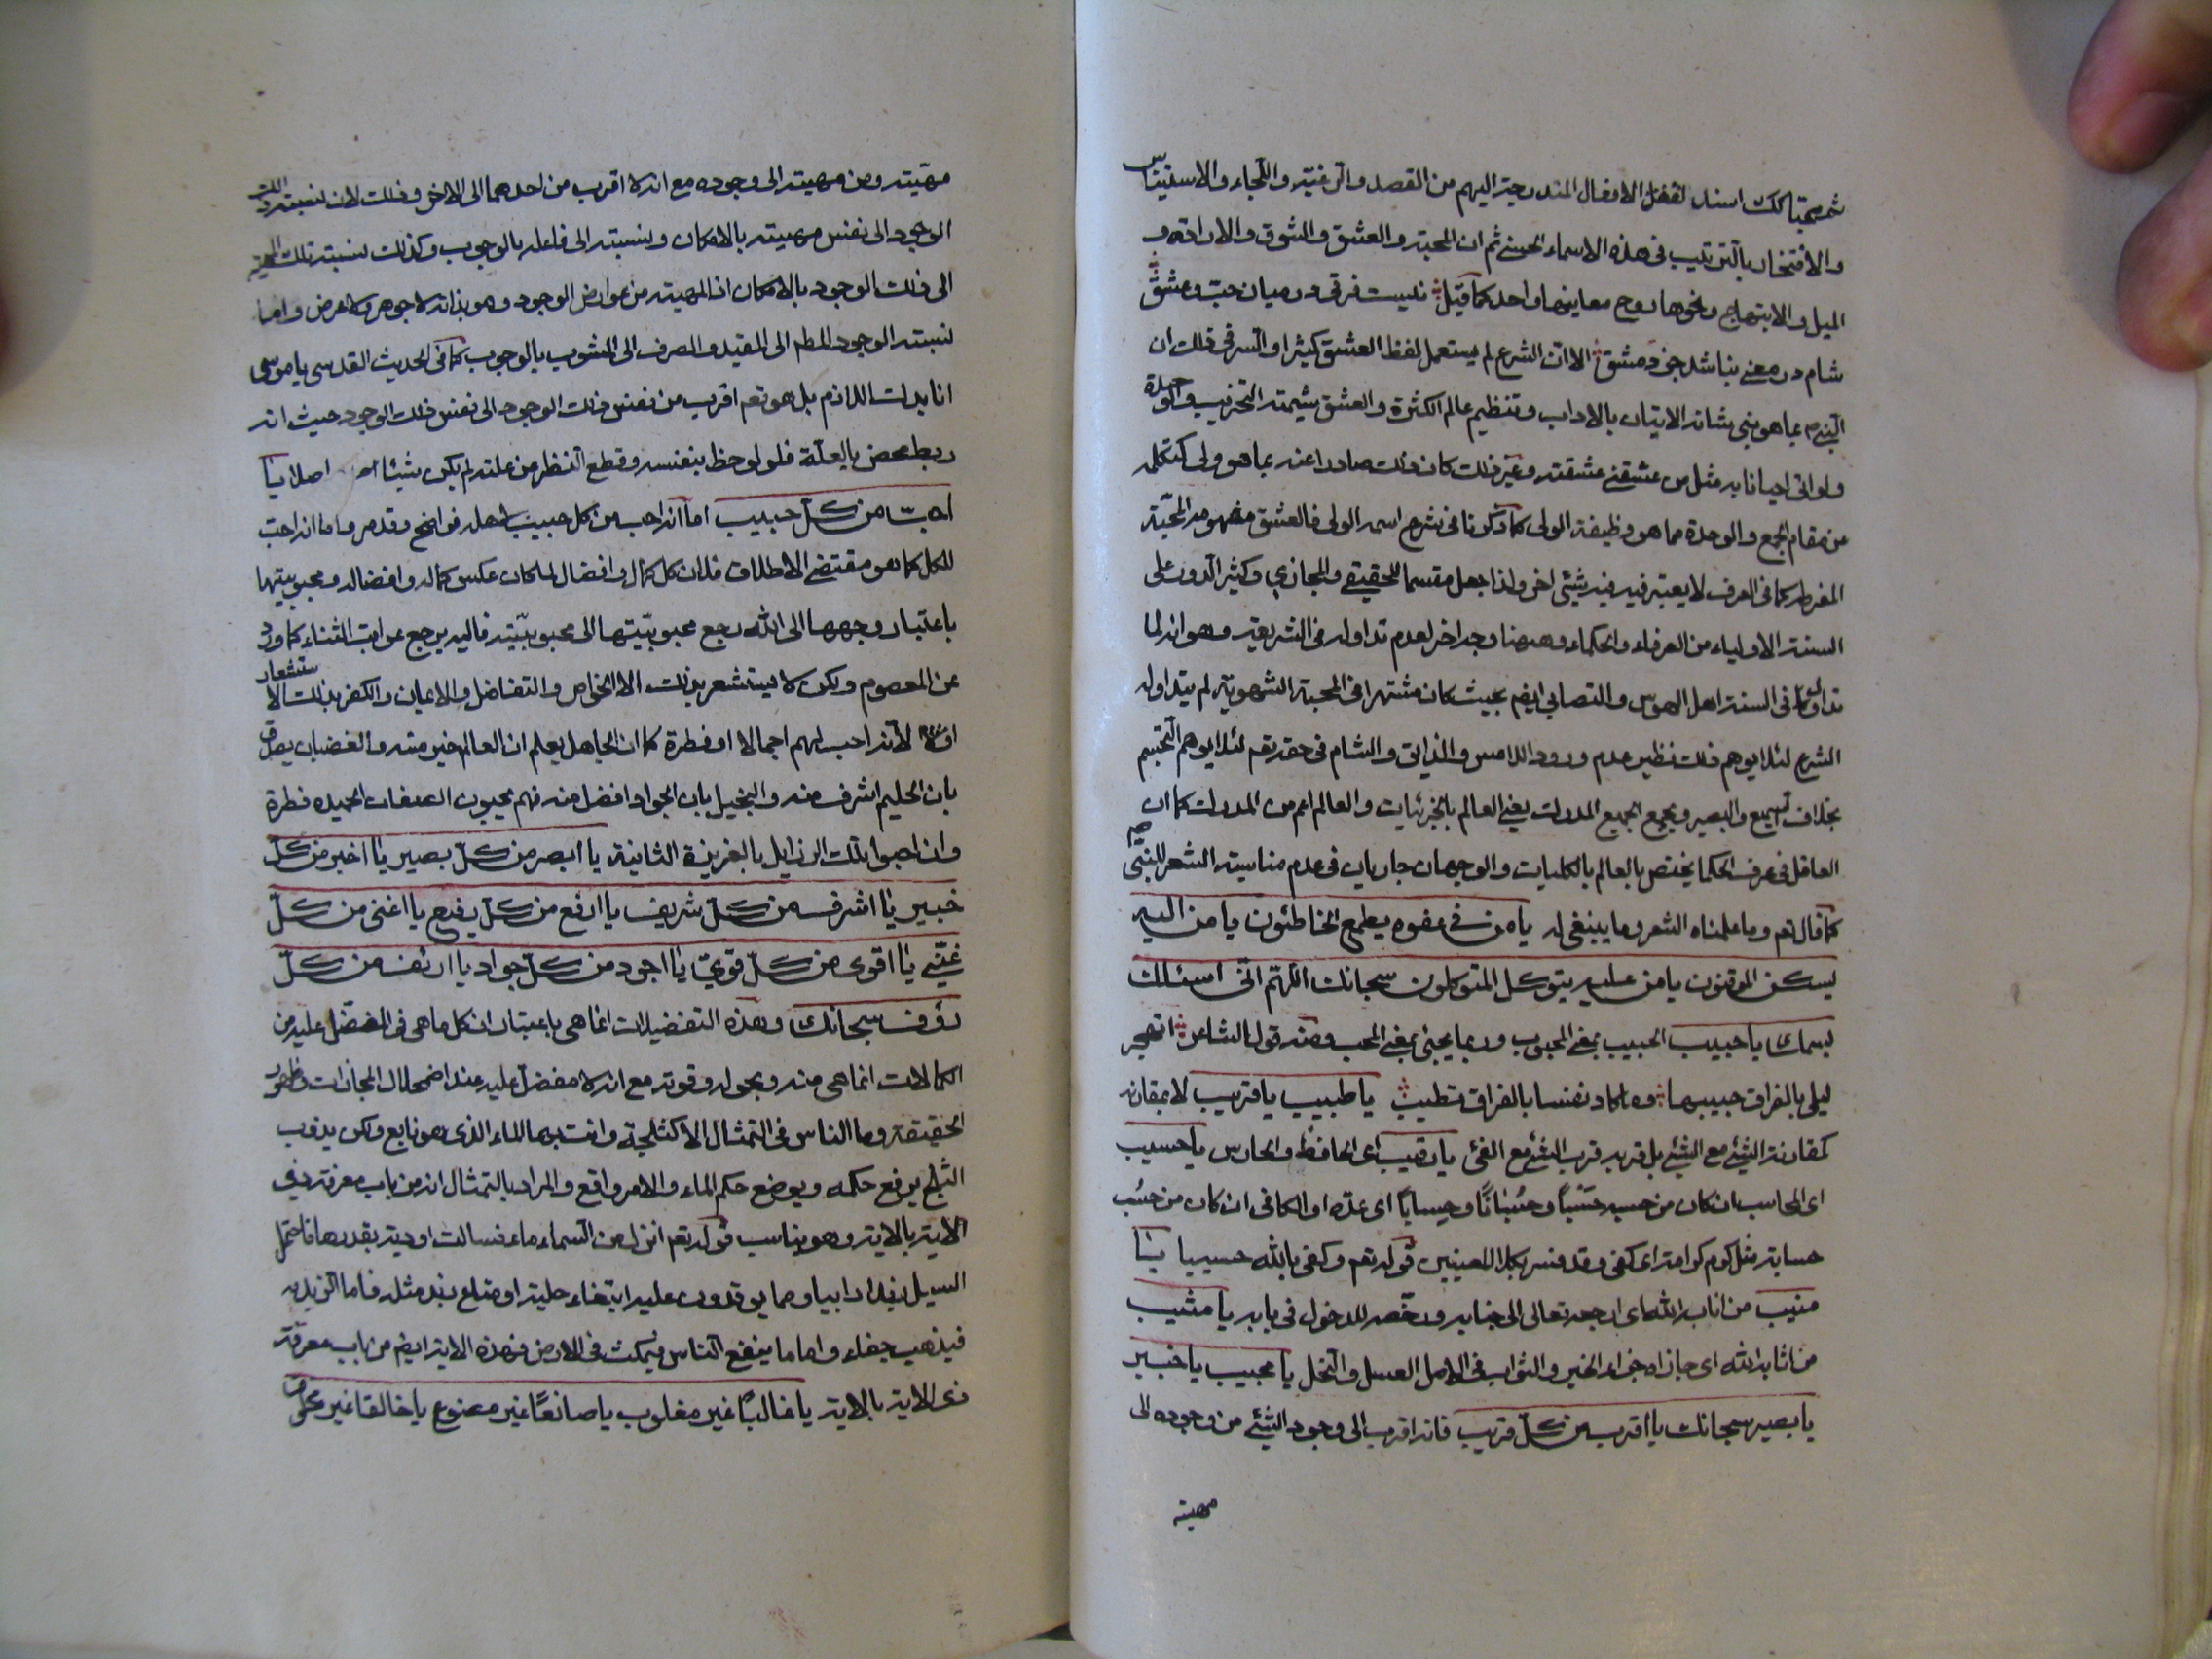 ثم بمحبتالك اسند لفضل الافعال المندرجة اليهم من القصد والرغبة واللجاء والاستيناس
والافتخار بالترتيب فى هذه الاسماء الحسنى ثم ان المحبة والعشق والشوق والارادة و
الميل والابتهاج ونحوها روح معاينها واحد كما قيل نيست فرقى درميان حب وعشق
شام در معنى نباشد جز دمشق الا ان الشرع لم يستعمل لفظ العشق كثيرا والسر فى ذلك ان
النبى بما هو نبى شانه الاتيان بالاداب وتنظيم عالم الكثرة والعشق شيمته التخريب والوحدة
ولو اتى احيانا به مثل من عشقنى عشقته وغير ذلك كان ذلك صادرا عنه بما هو ولى كتكلمه
من مقام الجمع والوحدة مما هو وظيفة الولى كما ذكرنا فى شرح اسمه الولى فالعشق مفهومه المحبة
المفرطة كما فى العرف لا يعتبر فيه شيئى اخر ولذا جعل مقسما للحقيقى والمجازى وكثير الدور على
السنة الاولياء من العرفاء والحكماء وههنا وجه اخر لعدم تداوله فى الشريعة وهو انه لما
تداول فى السنة اهل الهوس والتصابى ايضم بحيث كان مشتهرا فى المحبة الشهوية لم يتداوله
الشرع لئلا يوهم ذلك نظير عدم ورود اللامس والذائق والشام فى حقه تعم لئلا يوهم التجسم
بخلاف السميع والبصير ويجمع الجميع المدرك يعنى العالم بالجزئيات والعالم اعم من المدرك كما ان
العاقل فى عرف الحكما يختص بالعالم بالكليات والوجهان جاريان فى عدم مناسبة الشعر للنبى ص
كما قال تعم وما علمناه الشعر وما ينبغى له يا من فى عفوه يطمع الخاطئون يا من اليه
يسكن الموقنون يا من عليه يتوكل المتوكلون سبحانك اللهم انى اسئلك
بسمك يا حبيب الحبيب بمعنى المحبوب وربما يجيئ بمعنى المحب ومنه قول الشاعر اتهجر
ليلى بالفراق حبيبها وما كاد نفسا بالفراق تطيب يا طبيب يا قريب لا بمقارنة
كمقارنة الشئ مع الشئ بل قربه قرب الشئ مع الفئ يا رقيب اى الحافظ والحارس يا حسيب
اى المحاسب ان كان من حسبه حَسْبًا وحُسْبانًا وحِسابًا اى عدّه او الكافى ان كان من حسُب
حسابة مثل كرم كرامة اى كفى وقد فسر بكلا المعنيين قوله تعم وكفى بالله حسيبا يا
منيب من اناب الله اى ارجعه تعالى الى جنابه ورخصه للدخول فى بابه يا مثيب
من اثابه الله اى جازاه جزاء الخير والثواب فى الاصل العسل والنحل يا مجيب يا خبير
يا بصير سبحانك يا اقرب من كل قريب فانه اقرب الى وجود الشئ من وجوده الى
مهيته
مهيته ومن مهيته الى وجوده مع انه لا اقرب من احدهما الى الاخر وذلك لان نسبة ذلك
الوجود الى نفس مهيته بالامكان ونسبته الى فاعله بالوجوب وكذلك نسبة تلك المهية
الى ذلك الوجود بالامكان اذ المهية من عوارض الوجود وهو بذاته لا جوهر ولا عرض واما
نسبة الوجود المطم الى المقيد والصرف الى المشوب بالوجوب كما فى الحديث القدسى يا موسى
انا بدك اللازم بل هو تعم اقرب من نفس ذلك الوجود الى نفس ذلك الوجود حيث انه
ربط محض بالعلة فلو لوحظ بنفسه وقطع النظر من علته لم يكن شيئا اصلا يا
احب من كل حبيب اما انه احب من كل حبيب لاهله فواضح وقد مر واما انه احب
للكل كما هو مقتضى الاطلاق فلان كل كمال وافضال لما كان عكس كماله وافضاله ومحبوبيتها
باعتبار وجهها الى الله رجع محبوبيتها الى محبوبيته فاليه يرجع عواقب الثناء كما ورد
عن المعصوم ولكن لا يستشعر بذلك الا الخواص والتفاضل والايمان والكفر بذلك الاستشعار
لانه احب لهم اجمالا او فطرة كما ان الجاهل يعلم ان العالم خير منه والغضبان يصدق
بان الحليم اشرف منه والبخيل بان الجواد افضل منه فهم يحبون الصفات الحميده فطرة
وان احبوا تلك الرذايل بالغريزة الثانية يا ابصر من كل بصير يا اخبر من كل
خبير يا اشرف من كل شريف يا ارفع من كل رفيع يا اغنى من كل
غنى يا اقوى من كل قوى يا اجود من كل جواد يا ارئف من كل
رؤف سبحانك وهذه التفضيلات انما هى باعتبار ان كل ما هى فى المفضل عليه من
الكمالات انما هى منه وبحوله وقوته مع انه لا مفضل عليه عند اضمحلال المجازات وظهور
الحقيقة وما الناس فى التمثال الا كثلجة وانت بها الماء الذى هو نابع ولكن يذوب
الثلج يرفع حكمه ويوضع حكم الماء والامر واقع والمراد بالتمثال انه من باب معرفة ذى
الاية بالاية وهو يناسب قوله تعم انزل من السماء ماء فسالت اودية بقدرها فاحتمل
السيل زبدا رابيا ومما يوقدون عليه ابتغاء حلية او متاع زبد مثله فاما الزبد
فيذهب جفاء واما ما ينفع الناس فيمكث فى الارض فهذه الاية ايضم من باب معرفة
ذى الاية بالاية يا غالبًا غير مغلوب يا صانعًا غير مصنوع يا خالقا غير مخلوق